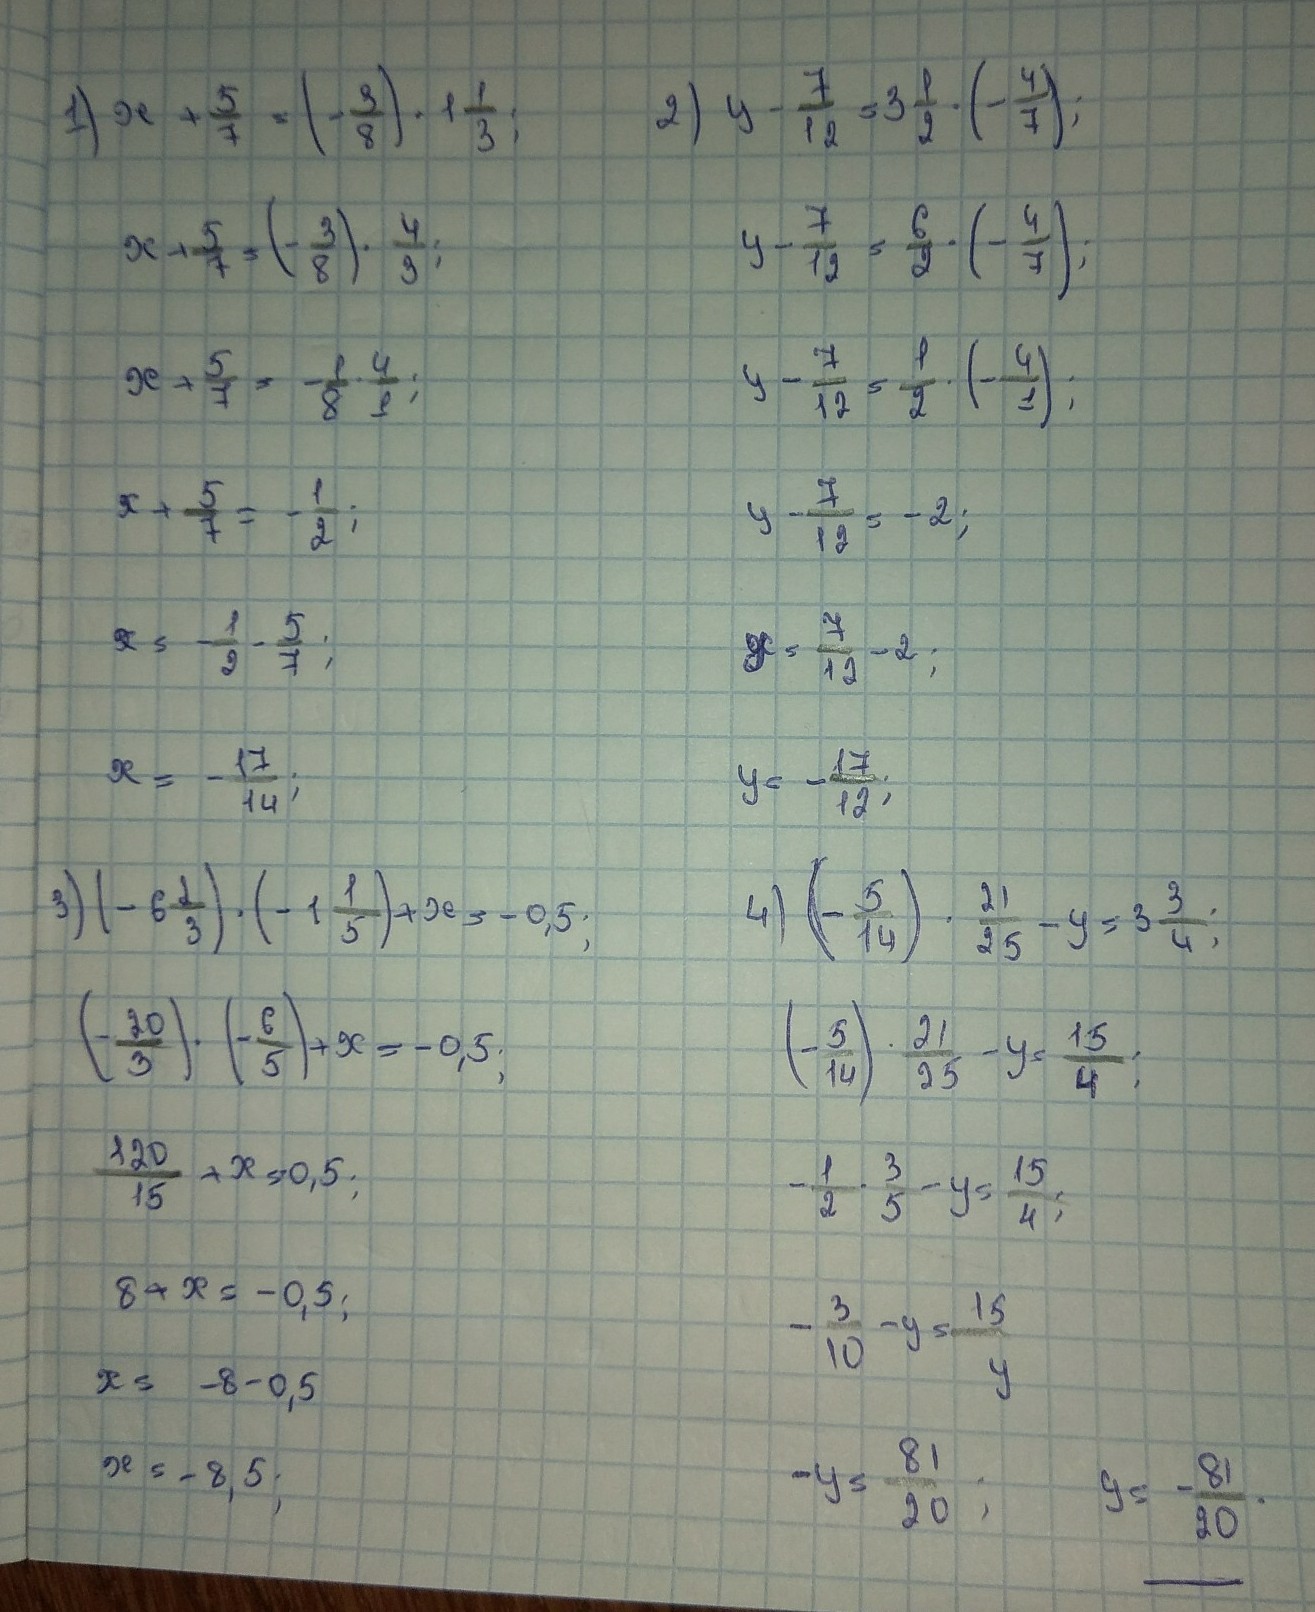 1) x + 5/7 = (- 3/8) · 1 1/3;
x + 5/7 = (- 3/8) · 4/3;
x + 5/7 = - 1/8 · 4/1;
x + 5/7 = - 1/2;
x = - 1/2 - 5/7;
x = - 17/14;
2) y - 7/12 = 3 1/2 · (- 4/7);
y - 7/12 = 6/2 · (- 4/7);
y - 7/12 = 1/2 · (- 4/1);
y - 7/12 = -2;
y = 7/12 - 2;
y = - 17/12;
3) (- 6 2/3) · (- 1 1/5) + x = -0,5;
(- 20/3) · (- 6/5) + x = -0,5;
120/15 + x = 0,5;
8 + x = -0,5;
x = -8 - 0,5
x = -8,5;
4) (- 5/14) · 21/25 - y = 3 3/4;
(- 5/14) · 21/25 - y = 15/4;
- 1/2 · 3/5 - y = 15/4;
- 3/10 - y = 15/y
-y = 81/20; y = - 81/20.